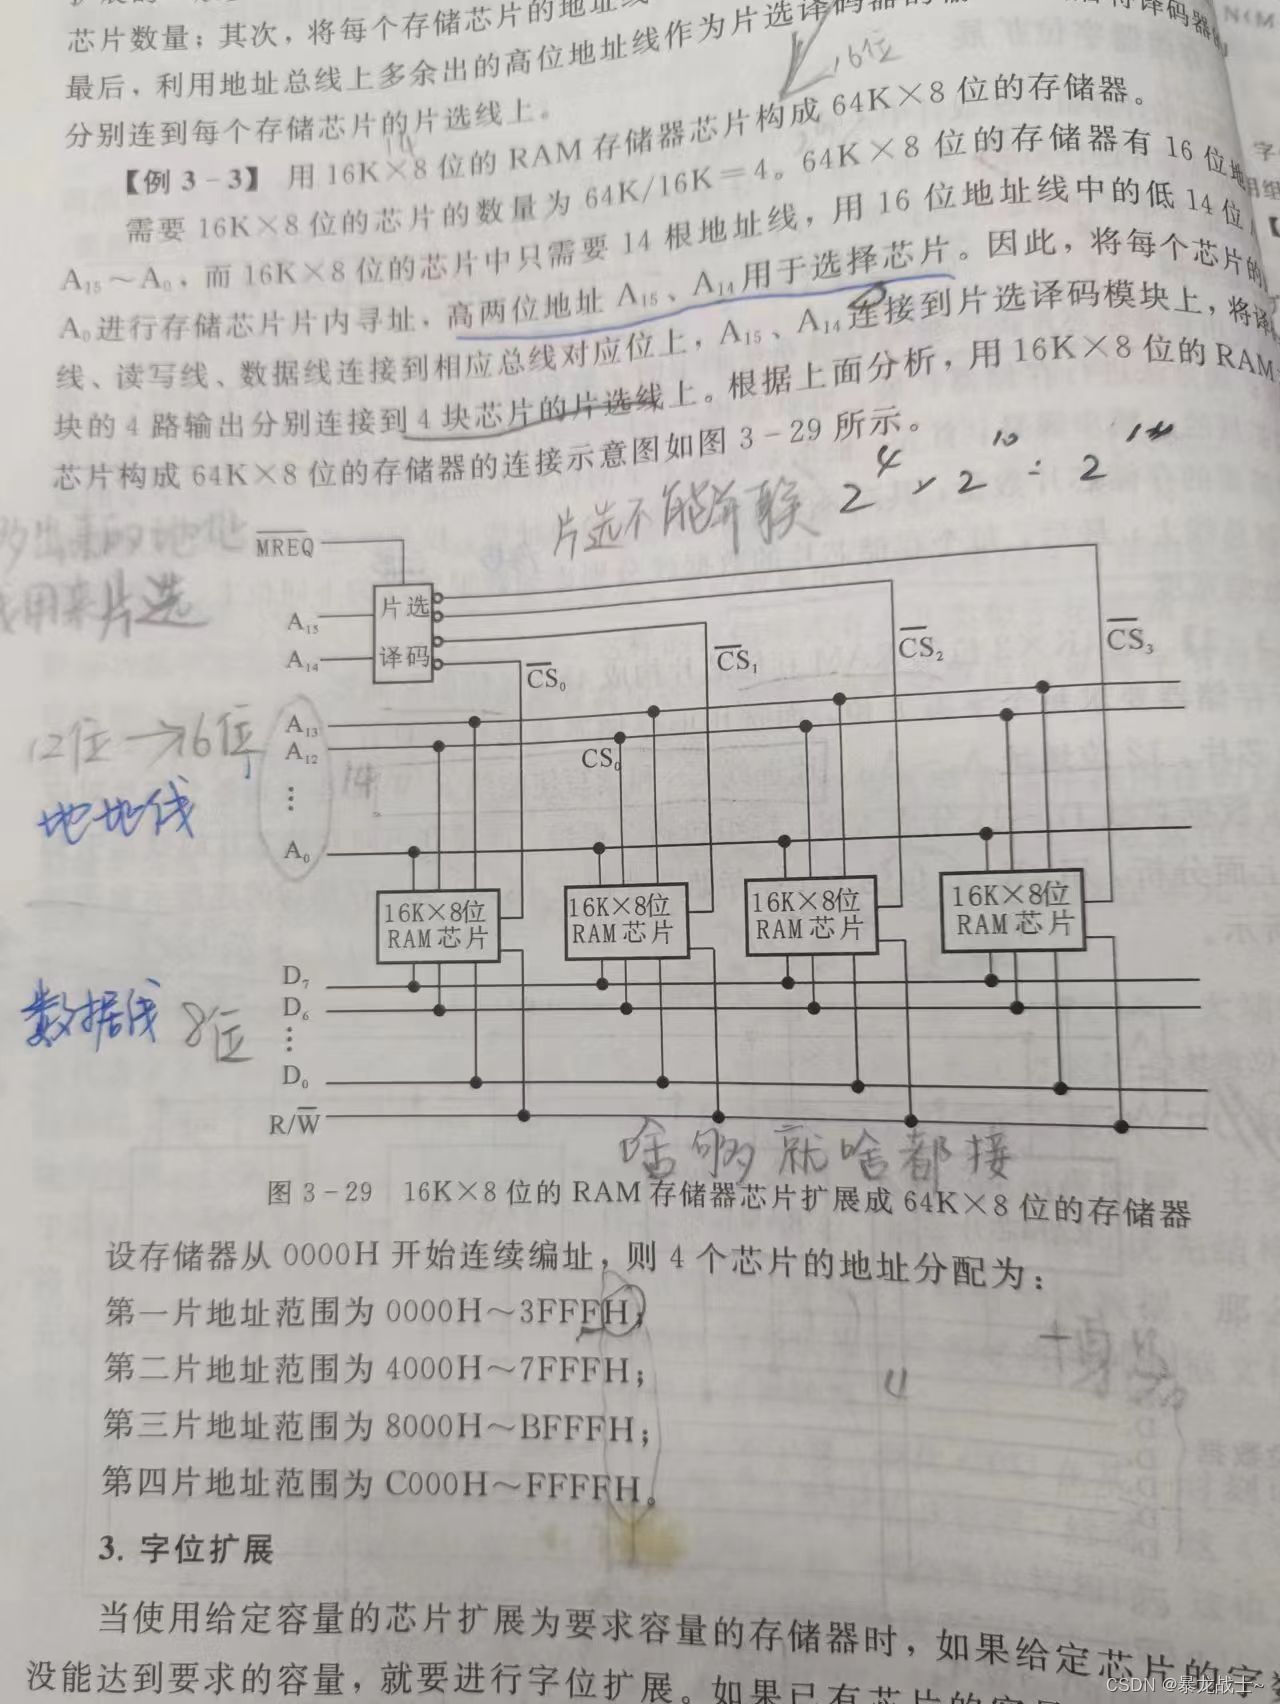 芯片数量；其次，将每个存储芯片的地址线
最后，利用地址总线上多余出的高位地址线作为片选译码器的
分别连到每个存储芯片的片选线上。
16位
【例 3-3】 用 16K×8 位的 RAM 存储器芯片构成 64K×8 位的存储器。
需要 16K×8 位的芯片的数量为 64K/16K=4。64K×8 位的存储器有 16 位地
A₁₅～A₀，而 16K×8 位的芯片中只需要 14 根地址线，用 16 位地址线中的低 14 位
A₀进行存储芯片片内寻址，高两位地址 A₁₅、A₁₄用于选择芯片。因此，将每个芯片的
线、读写线、数据线连接到相应总线对应位上，A₁₅、A₁₄连接到片选译码模块上，将译
块的 4 路输出分别连接到 4 块芯片的片选线上。根据上面分析，用 16K×8 位的 RAM
芯片构成 64K×8 位的存储器的连接示意图如图 3-29 所示。
2⁴ × 2¹⁰ = 2¹⁴
片选不能并联
多出来的地址
用来片选
M̅R̅E̅Q̅
A₁₅
A₁₄
片选
译码
C̅S̅₀
C̅S̅₁
C̅S̅₂
C̅S̅₃
A₁₃
A₁₂
⋮
A₀
CS₀
14
12位→16位
地地线
16K×8位
RAM 芯片
16K×8位
RAM 芯片
16K×8位
RAM 芯片
16K×8位
RAM 芯片
D₇
D₆
⋮
D₀
R/W̅
数据线 8位
啥够就啥都接
图 3-29 16K×8 位的 RAM 存储器芯片扩展成 64K×8 位的存储器
设存储器从 0000H 开始连续编址，则 4 个芯片的地址分配为：
第一片地址范围为 0000H～3FFFH；
第二片地址范围为 4000H～7FFFH；
第三片地址范围为 8000H～BFFFH；
第四片地址范围为 C000H～FFFFH。
4
3. 字位扩展
当使用给定容量的芯片扩展为要求容量的存储器时，如果给定芯片的字
没能达到要求的容量，就要进行字位扩展。如果已有芯片的容
CSDN @暴龙战士~